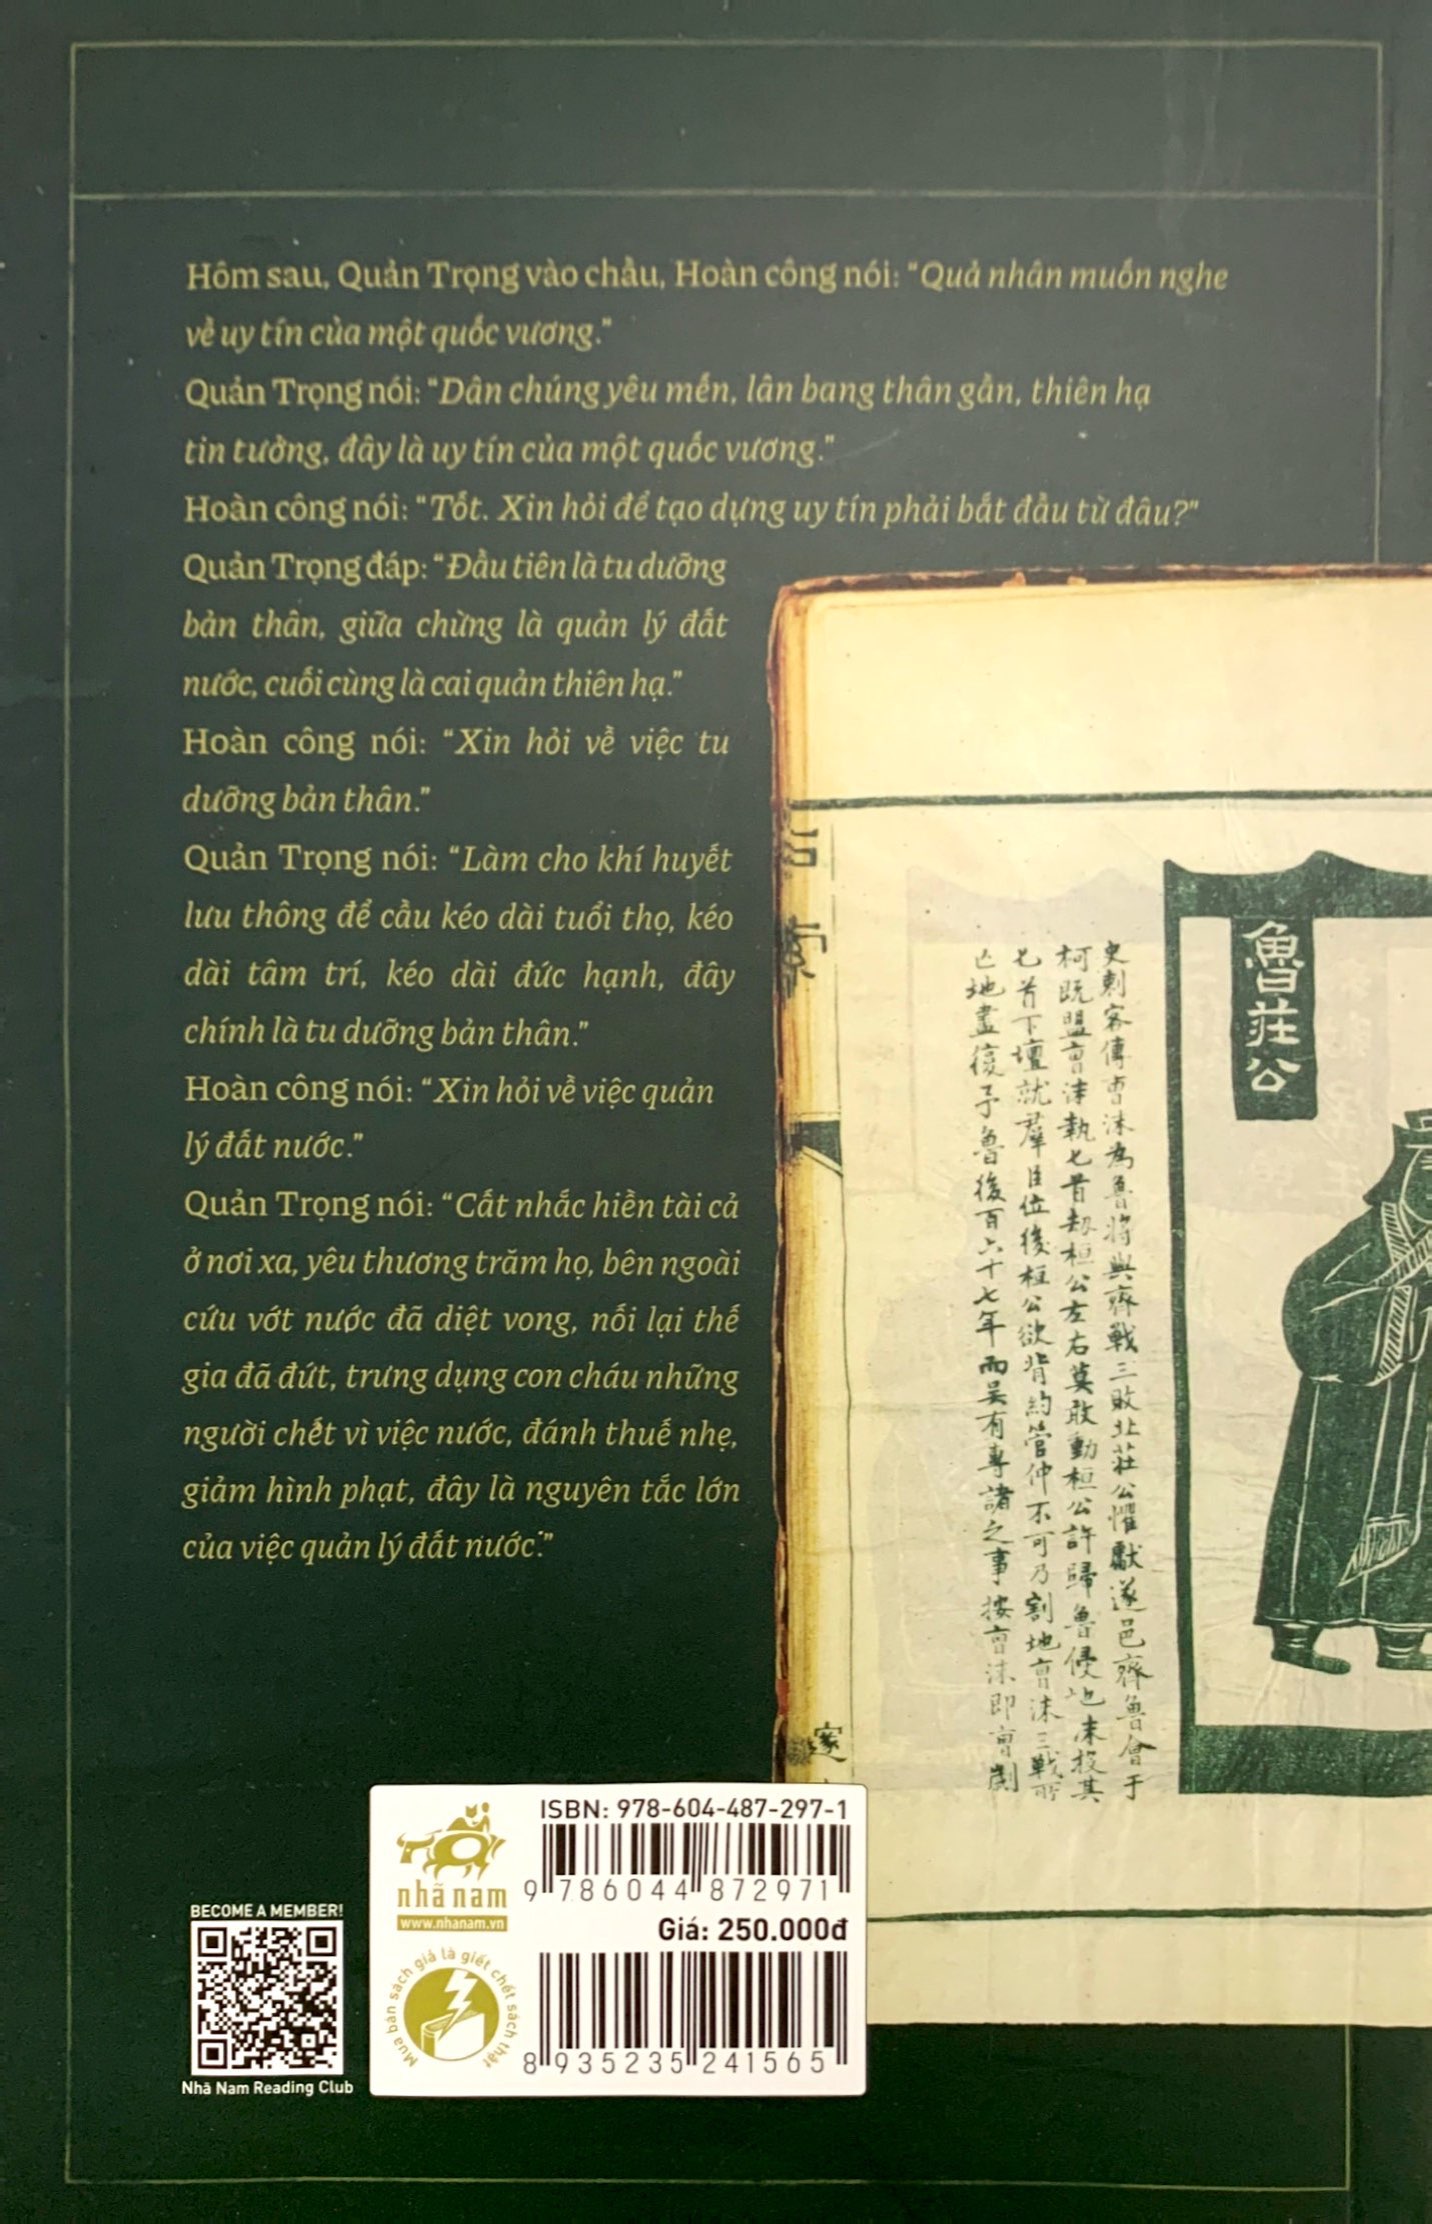 Hôm sau, Quản Trọng vào chầu, Hoàn công nói: “Quả nhân muốn nghe
về uy tín của một quốc vương.”
Quản Trọng nói: “Dân chúng yêu mến, lân bang thân gần, thiên hạ
tin tưởng, đây là uy tín của một quốc vương.”
Hoàn công nói: “Tốt. Xin hỏi để tạo dựng uy tín phải bắt đầu từ đâu?”
Quản Trọng đáp: “Đầu tiên là tu dưỡng
bản thân, giữa chừng là quản lý đất
nước, cuối cùng là cai quản thiên hạ.”
Hoàn công nói: “Xin hỏi về việc tu
dưỡng bản thân.”
Quản Trọng nói: “Làm cho khí huyết
lưu thông để cầu kéo dài tuổi thọ, kéo
dài tâm trí, kéo dài đức hạnh, đây
chính là tu dưỡng bản thân.”
Hoàn công nói: “Xin hỏi về việc quản
lý đất nước.”
Quản Trọng nói: “Cất nhắc hiền tài cả
ở nơi xa, yêu thương trăm họ, bên ngoài
cứu vớt nước đã diệt vong, nối lại thế
gia đã đứt, trưng dụng con cháu những
người chết vì việc nước, đánh thuế nhẹ,
giảm hình phạt, đây là nguyên tắc lớn
của việc quản lý đất nước.”
魯莊公
史刺客傳曹沫為魯將與齊戰三敗北莊公懼獻遂邑齊魯會于
柯既盟曹沫執匕首劫桓公左右莫敢動桓公許歸魯侵地沫投其
匕首下壇就羣臣位後桓公欲背約管仲不可乃割地曹沫三戰所
亡地盡復予魯後百六十七年而吳有專諸之事按曹沫即曹劌
ISBN: 978-604-487-297-1
9 786044 872971
nhã nam
www.nhanam.vn
Giá: 250.000đ
Mua bán sách giả là giết chết sách thật
8 935235 241565
BECOME A MEMBER!
Nhã Nam Reading Club